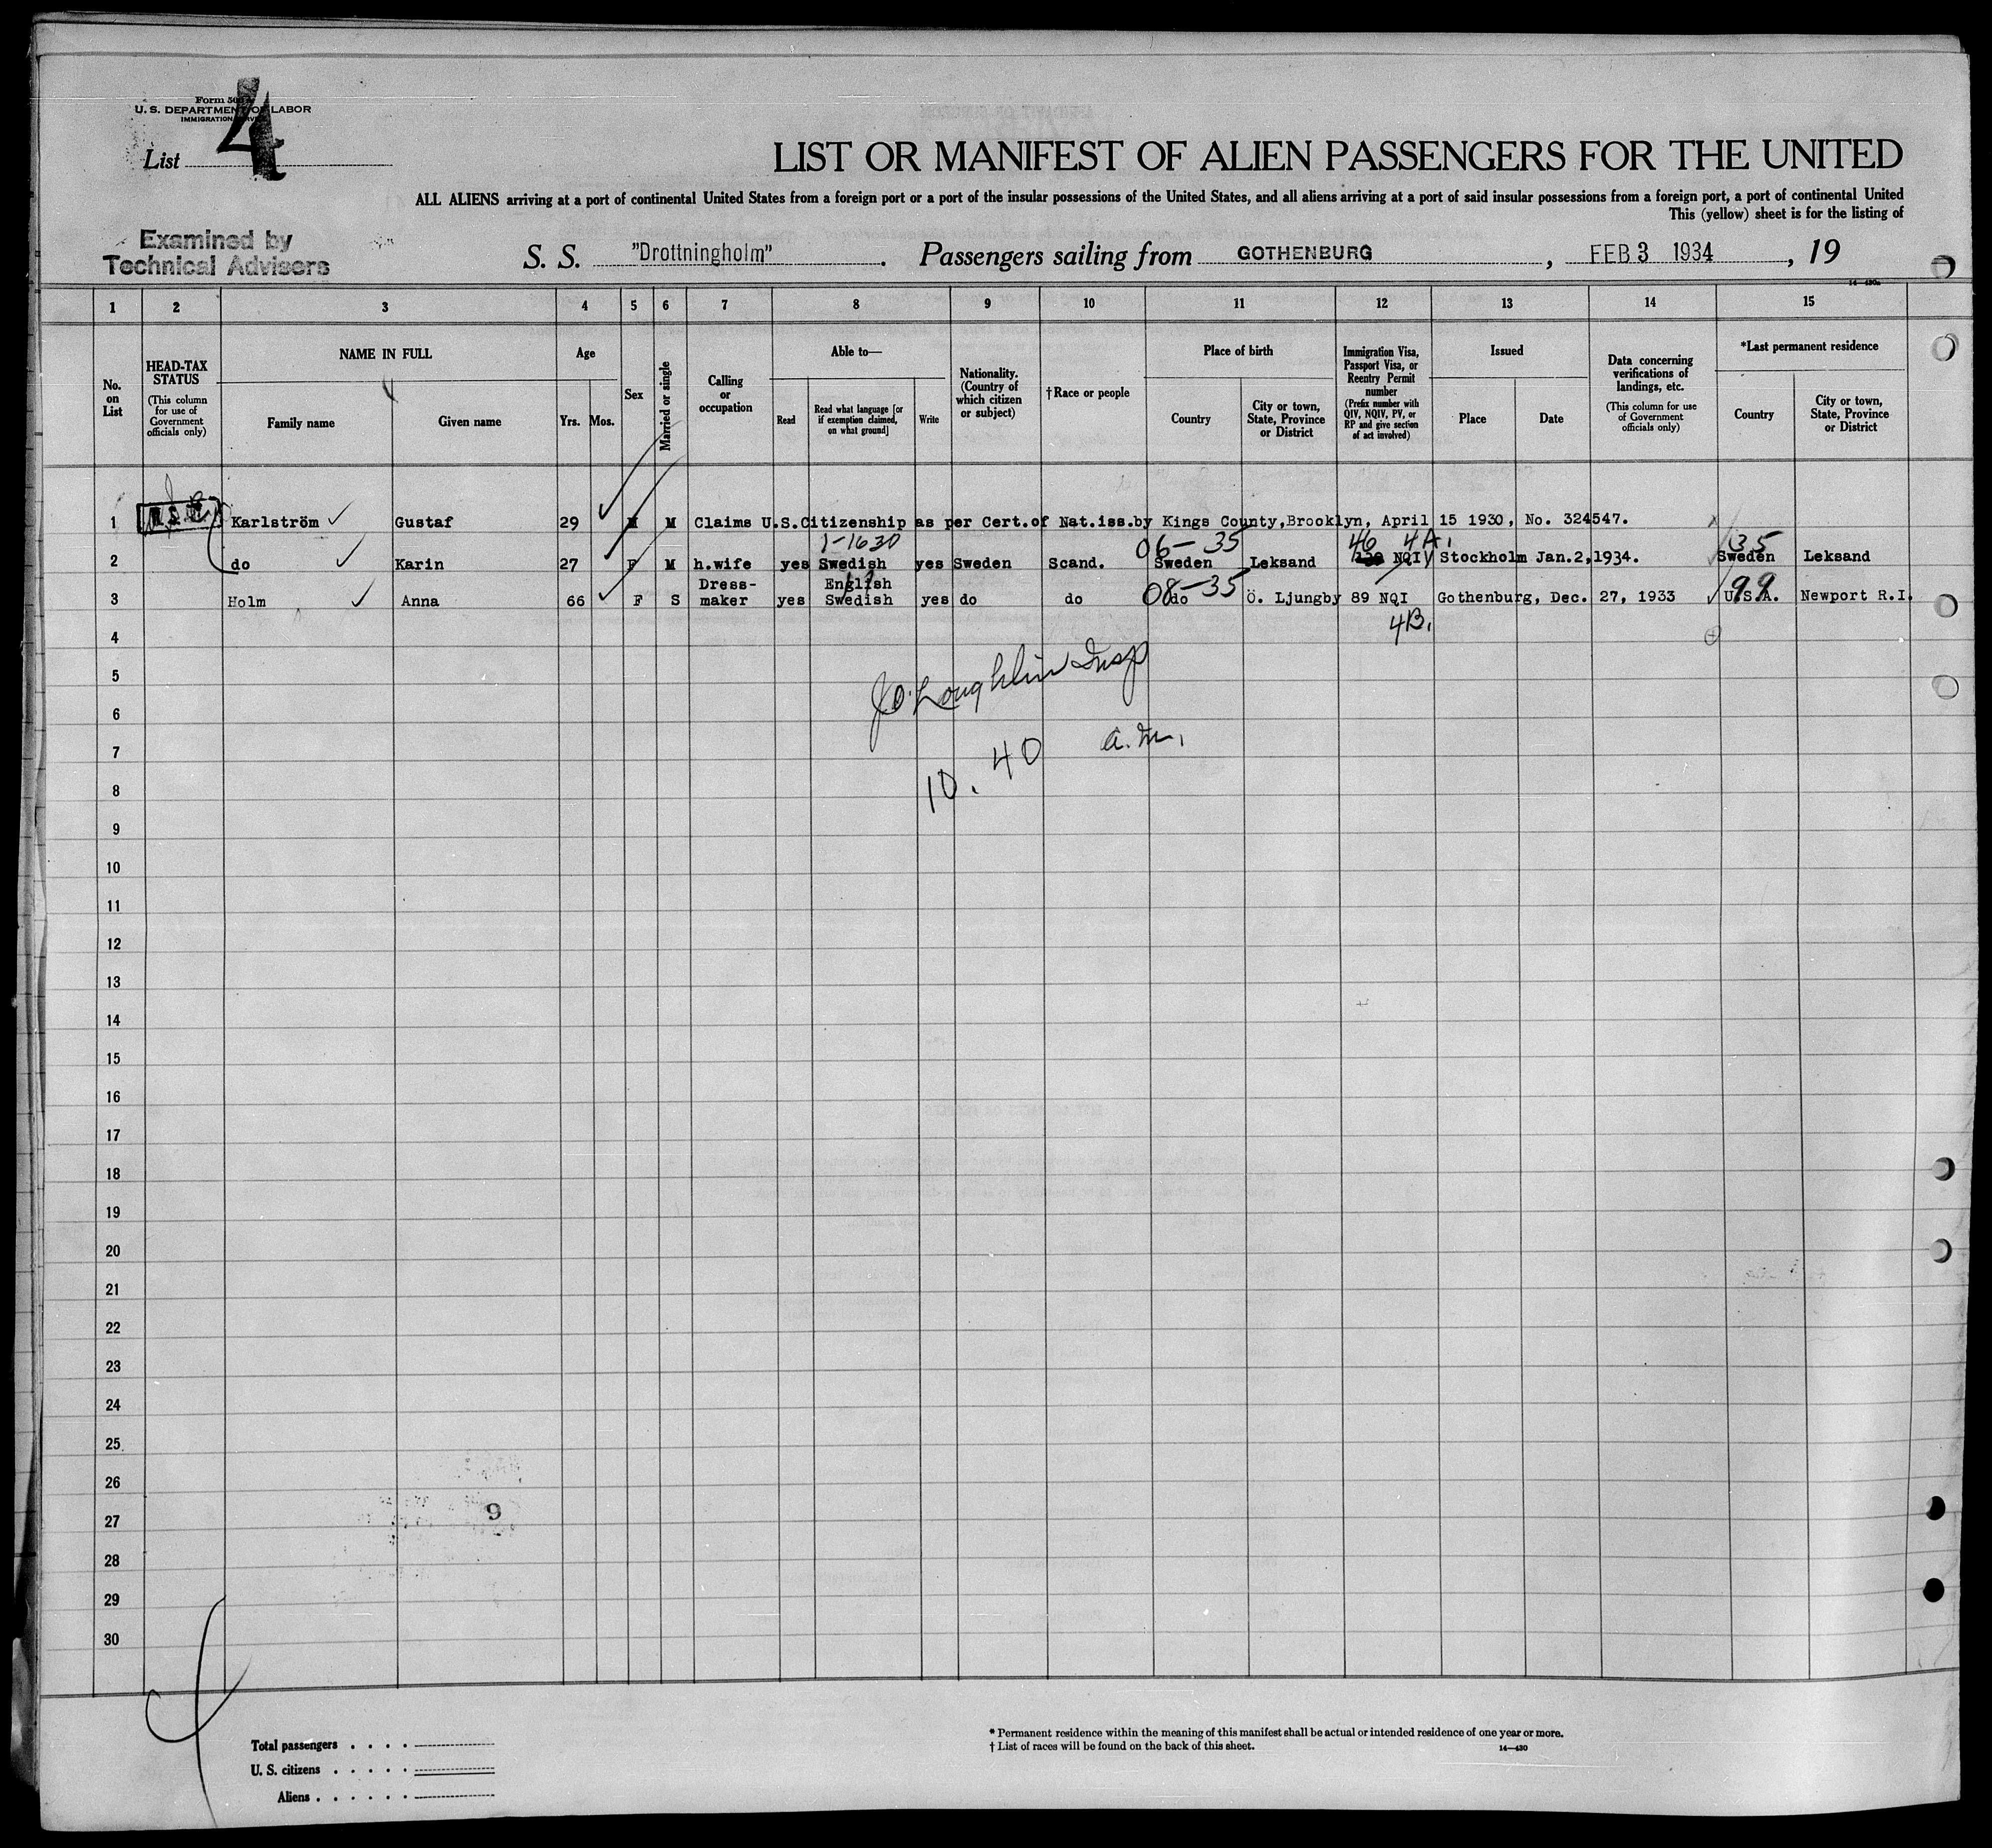 Form 500
U. S. DEPARTMENT OF LABOR
IMMIGRATION SERVICE
List 4
LIST OR MANIFEST OF ALIEN PASSENGERS FOR THE UNITED
ALL ALIENS arriving at a port of continental United States from a foreign port or a port of the insular possessions of the United States, and all aliens arriving at a port of said insular possessions from a foreign port, a port of continental United
This (yellow) sheet is for the listing of
Examined by
Technical Advisers
S. S. "Drottningholm". Passengers sailing from GOTHENBURG, FEB 3 1934, 19
1 2 3 4 5 6 7 8 9 10 11 12 13 14 15
No. on List
HEAD-TAX STATUS (This column for use of Government officials only)
NAME IN FULL
Family name
Given name
Age
Yrs. Mos.
Sex
Married or single
Calling or occupation
Able to—
Read
Read what language [or if exemption claimed, on what ground]
Write
Nationality. (Country of which citizen or subject)
†Race or people
Place of birth
Country
City or town, State, Province or District
Immigration Visa, Passport Visa, or Reentry Permit number (Prefix number with QIV, NQIV, PV, or RP and give section of act involved)
Issued
Place
Date
Data concerning verifications of landings, etc. (This column for use of Government officials only)
*Last permanent residence
Country
City or town, State, Province or District
1 Karlström Gustaf 29 M M Claims U.S.Citizenship as per Cert.of Nat.iss.by Kings County,Brooklyn, April 15 1930, No. 324547.
1-1630 06-35 46 4A. 35
2 do Karin 27 F M h.wife yes Swedish yes Sweden Scand. Sweden Leksand NQIV Stockholm Jan.2,1934. Sweden Leksand
Dress- English 08-35 99
3 Holm Anna 66 F S maker yes Swedish yes do do do Ö. Ljungby 89 NQI Gothenburg, Dec. 27, 1933 U.S.A. Newport R.I.
4B.
4
5
J O'Loughlin Insp
6
7
10.40 a.m.
8
9
10
11
12
13
14
15
16
17
18
19
20
21
22
23
24
25
26
9
27
28
29
30
Total passengers . . . .
U. S. citizens . . . . .
Aliens . . . . . .
* Permanent residence within the meaning of this manifest shall be actual or intended residence of one year or more.
† List of races will be found on the back of this sheet.
14—430